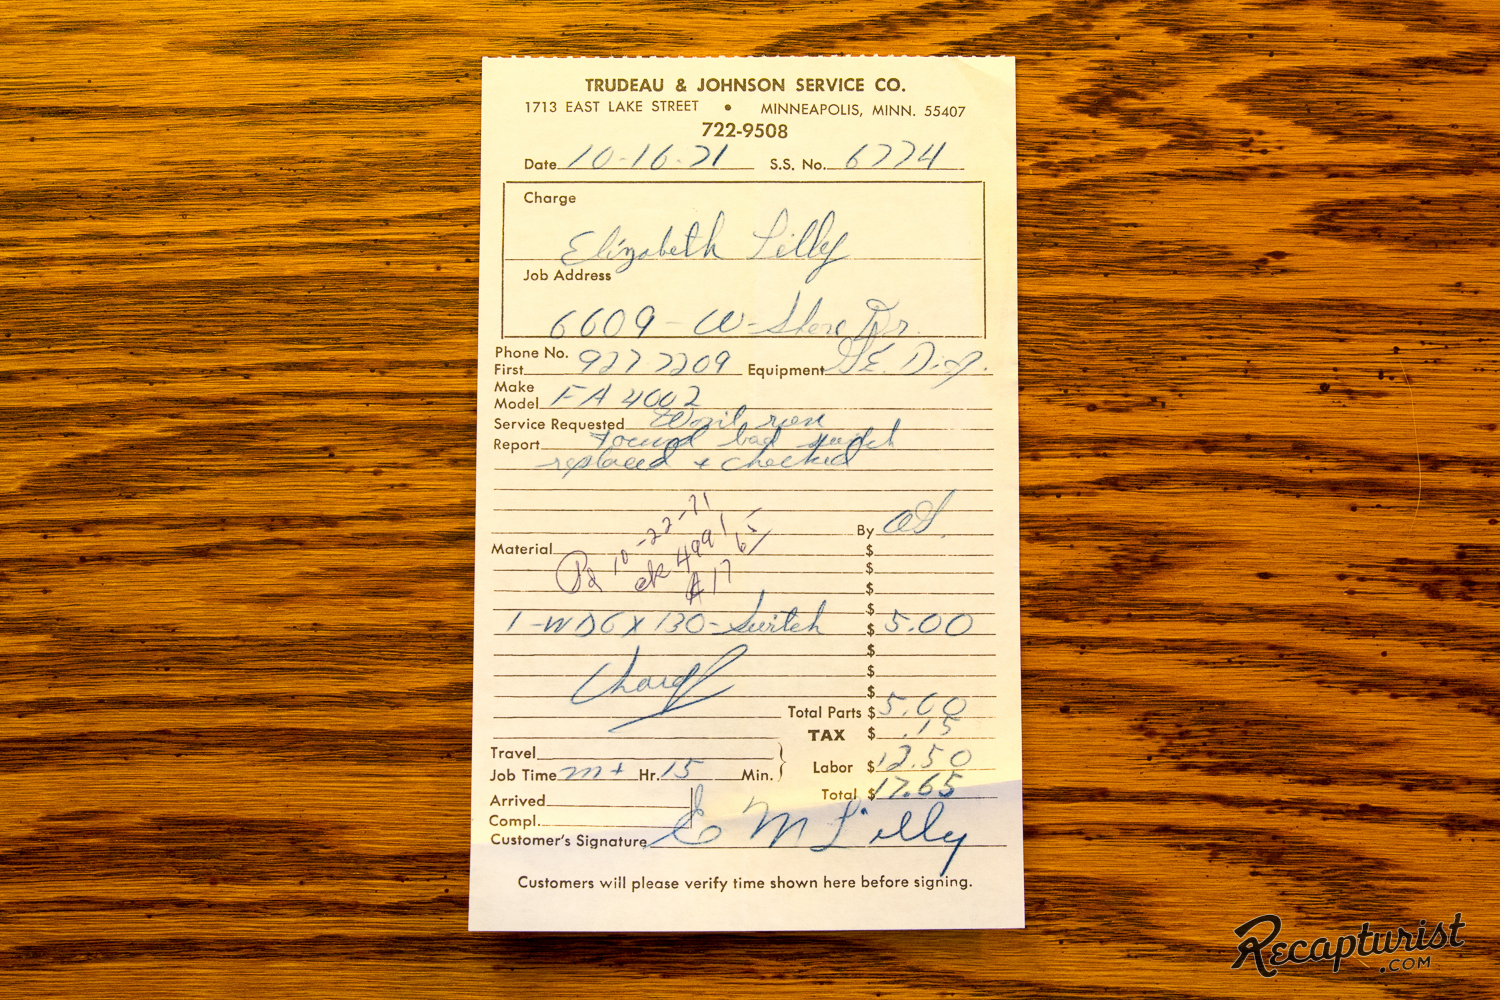 TRUDEAU & JOHNSON SERVICE CO.
1713 EAST LAKE STREET • MINNEAPOLIS, MINN. 55407
722-9508
Date 10-16-71 S.S. No. 6774
Charge
Elizabeth Lilly
Job Address
6609 - W- Shore Dr.
Phone No.
First 927-7209 Equipment GE. Disp.
Make
Model FA 4002
Service Requested Won't run
Report found bad switch
replaced + checked
By
Material
Pd 10-22-71
ck 4991
$17 65/
$
$
$
$
1-WD6X130-Switch $ 5.00
$
$
Charge
$
Total Parts $ 5.00
TAX $ .15
Travel
Labor $ 12.50
Job Time m+ Hr. 15 Min.
Total $ 17.65
Arrived
Compl.
Customer's Signature E M Lilly
Customers will please verify time shown here before signing.
Recapturist
.COM